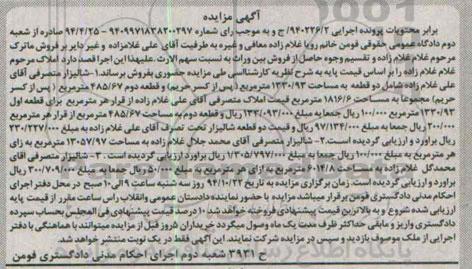 آگهی مزایده
برابر محتویات پرونده اجرایی ۹۴۰۲۳۶/۲ ج و به موجب رای شماره ۹۴۰۹۹۷۱۸۳۸۳۰۰۳۹۷ - ۹۴/۴/۲۵ صادره از شعبه
دوم دادگاه عمومی حقوقی فومن خانم رویا غلام زاده معافی و غیره به طرفیت آقای علی غلامزاده و غیر دایر بر فروش ماترک
مرحوم غلام غلام زاده و تقسیم وجوه حاصل از فروش بین وراث به نسبت سهم الارث، علیهذا این اجرا قصد دارد املاک مرحوم
غلام غلام زاده را بر اساس قیمت پایه به شرح نظریه کارشناسی طی مزایده حضوری بفروش برساند. ۱- شالیزار متصرفی آقای
علی غلام زاده شامل دو قطعه به مساحت ۱۳۳۰/۹۳ مترمربع (پس از کسر حریم) و قطعه دوم ۴۸۵/۶۷ مترمربع (پس از کسر
حریم) مجموعا به مساحت ۱۸۱۶/۶ مترمربع قیمت املاک متصرفی آقای علی غلام زاده از قرار هر مترمربع برای قطعه اول
۱۳۳۰/۹۳ مترمربع ۱۰۰/۰۰۰ ریال جمعا به مبلغ ۱۳۳/۰۹۳/۰۰۰ ریال و قطعه دوم به مساحت ۴۸۵/۶۷ مترمربع از قرار هر مترمربع
۲۰۰/۰۰۰ ریال جمعا به مبلغ ۹۷/۱۳۴/۰۰۰ ریال و قیمت دو قطعه شالیزار تحت تصرف آقای علی غلام زاده به مبلغ ۲۳۰/۲۲۷/۰۰۰
ریال برآورد و ارزیابی گردیده است. ۲- شالیزار متصرفی آقای محمد جلال غلام زاده به مساحت ۱۳۰۵۷/۹۷ مترمربع به ازای
هر مترمربع به مبلغ ۱۰۰/۰۰۰ ریال جمعا به مبلغ ۱/۳۰۵/۷۹۷/۰۰۰ ریال برآورد ارزیابی گردیده است. ۳- شالیزار متصرفی آقای
محمدگل غلام زاده به مساحت ۶۰۱۴/۸ مترمربع به ازای هر مترمربع به مبلغ ۵۰/۰۰۰ ریال جمعا به مبلغ ریال
برآورد و ارزیابی گردیده است. زمان برگزاری مزایده به تاریخ ۹۴/۱۰/۲۲ روز سه شنبه ساعت ۹ الی ۱۰ صبح در محل دفتر اجرای
احکام مدنی دادگستری فومن برقرار میباشد مزایده با حضور نماینده دادستان عمومی وانقلاب راس ساعت مقرر از قیمت پایه
ارزیابی شده شروع و به بالاترین قیمت پیشنهادی فروخته خواهد شد. ۱۰ درصد قیمت پیشنهادی فی المجلس بحساب سپرده
دادگستری واریز و مابقی حداکثر ظرف مدت یک ماه وصول میگردد خریداران ۵ روز قبل از مزایده میتوانند با هماهنگی با دفتر
اجرایی از ملک موصوف بازدید و سپس در مزایده شرکت نمایند. این آگهی فقط در یک نوبت منتشر خواهد شد.
ح ۳۹۳۱ شعبه دوم اجرای احکام مدنی دادگستری فومن